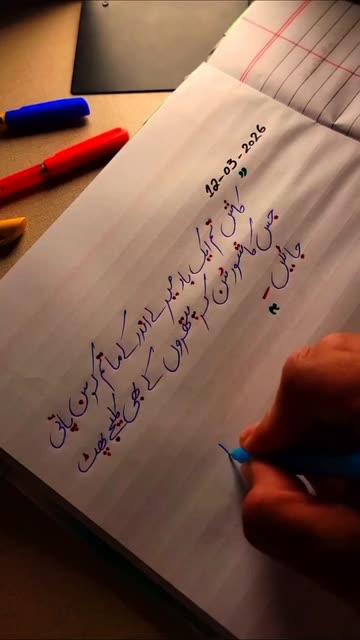 12-03-2026
"کاش تم ایک بار میرے اندر کے ماتم کو سن پاتی
جس کا شور سُن کر پتھروں کے بھی کلیجے پھٹ
جائیں۔"